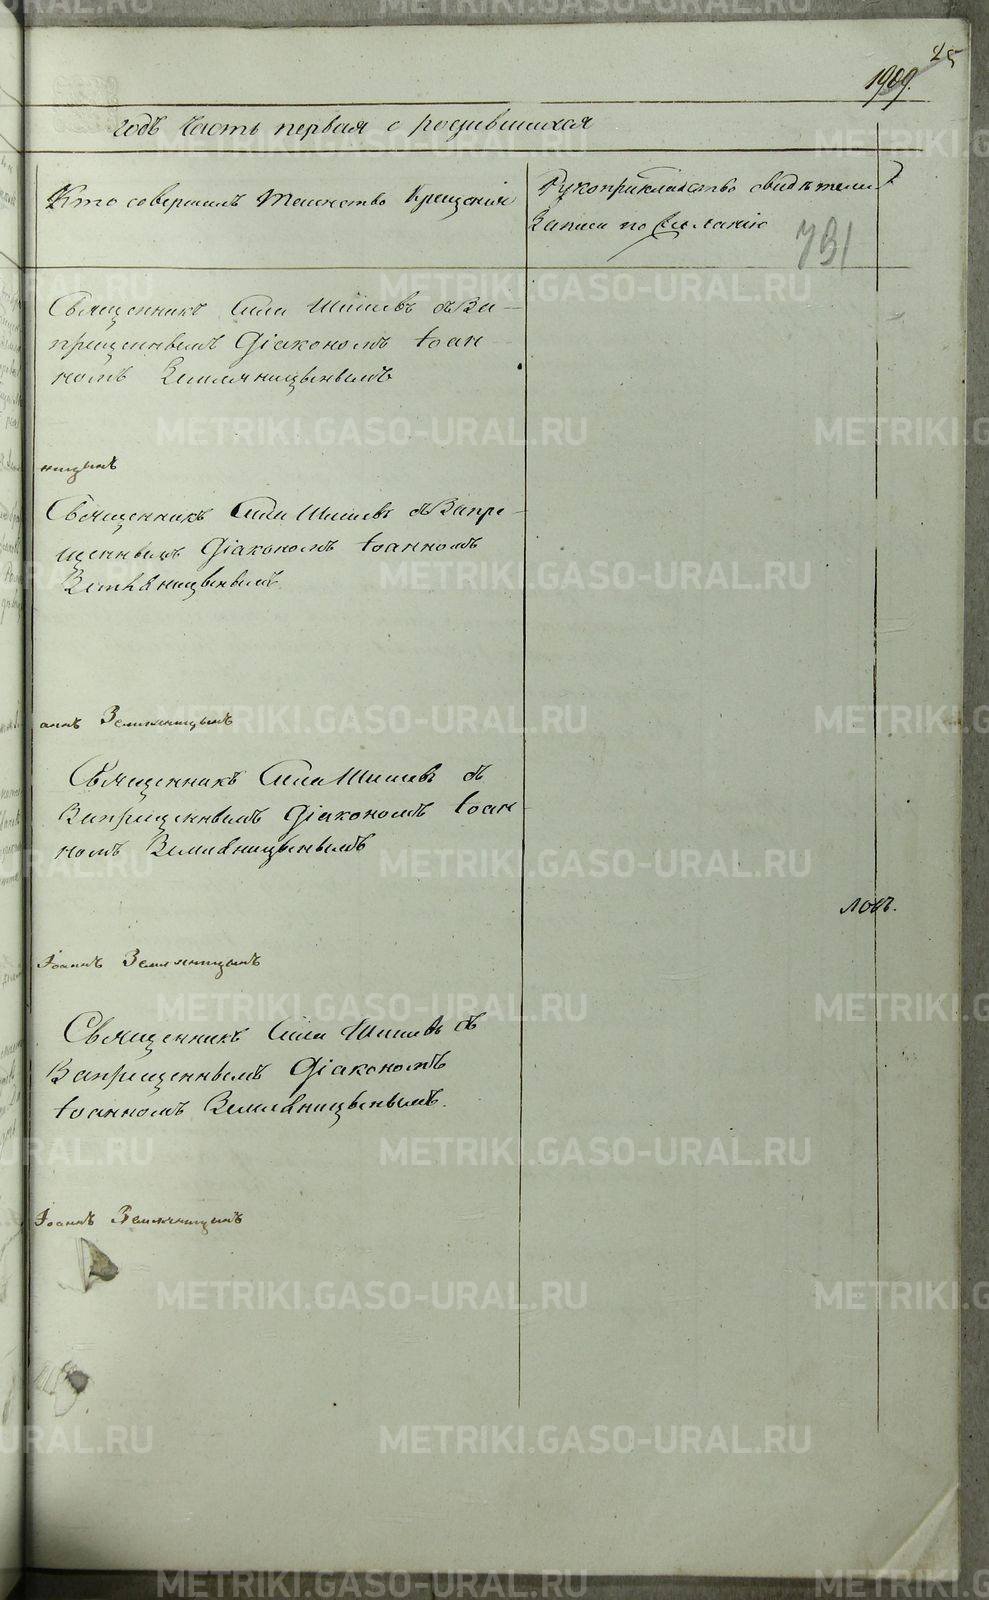 25
1909.
годъ Часть первая о родившихся
Кто совершалъ Таинство Крещенія
Рукоприкладство свидѣтелей
записи по желанію
791
Священникъ Сила Шишевъ съ За-
прещеннымъ Діакономъ Іоан
номъ Земляницынымъ
ницынъ
Священникъ Сила Шишевъ съ Запре-
щеннымъ Діакономъ Іоанномъ
Земляницынымъ
аннъ Земляницынъ
Священникъ Сила Шишевъ съ
Запрещеннымъ Діакономъ Іоан
номъ Земляницынымъ
ловъ.
Іоаннъ Земляницынъ
Священникъ Сила Шишевъ съ
Запрещеннымъ Діакономъ
Іоанномъ Земляницынымъ.
Іоаннъ Земляницынъ
METRIKI.GASO-URAL.RU